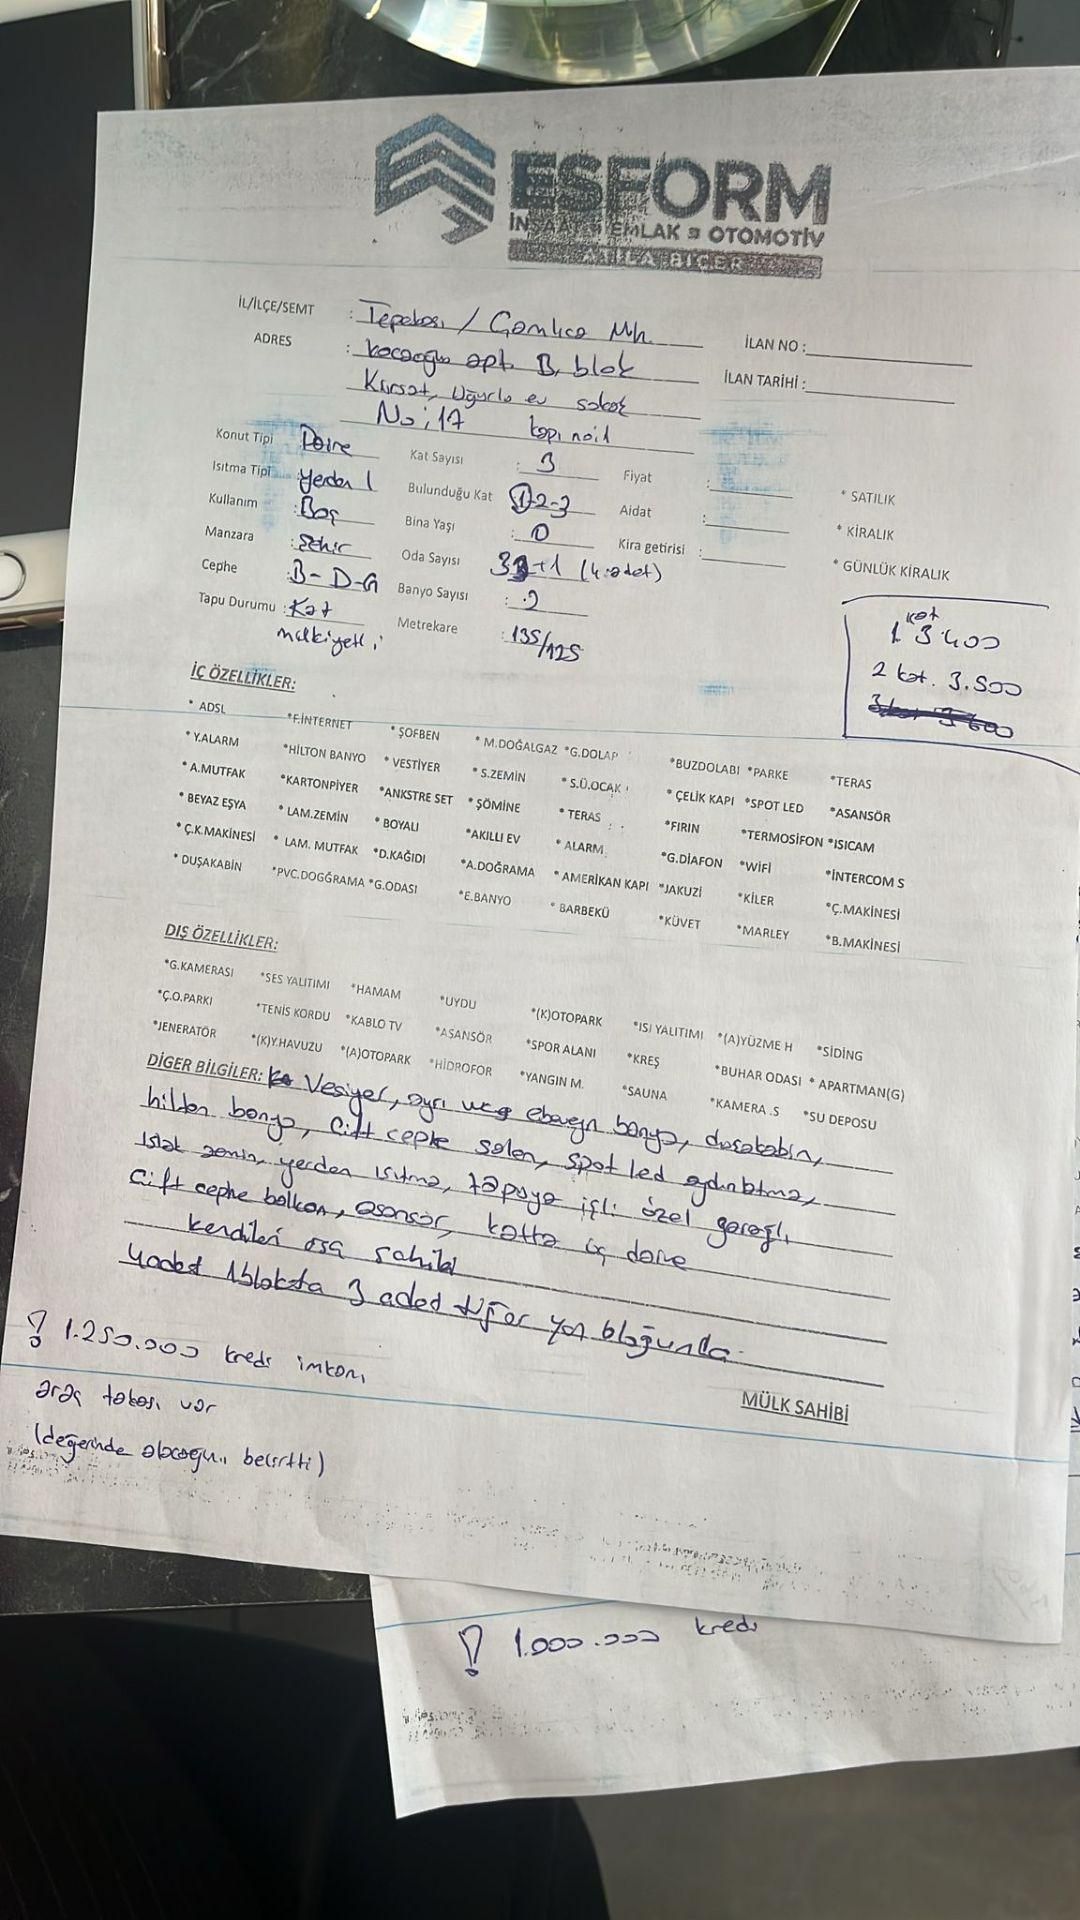 ESFORM
İNŞAAT EMLAK OTOMOTİV
ATİLA BİÇER
İL/İLÇE/SEMT : Tepebaşı / Çamlıca Mh.
İLAN NO :
ADRES : kocaoğlu apt. B. blok
İLAN TARİHİ :
Kürşat, Uğurlu ev sokak
No: 17 kapı no:1
Konut Tipi Daire Kat Sayısı : 3 Fiyat :
* SATILIK
Isıtma Tipi yerden I Bulunduğu Kat 1-2-3 Aidat :
* KİRALIK
Kullanım : Boş Bina Yaşı : 0 Kira getirisi :
* GÜNLÜK KİRALIK
Manzara : Şehir Oda Sayısı 3+1 (4 adet)
Cephe : B-D-G Banyo Sayısı : 2
Tapu Durumu : Kat mülkiyetli Metrekare : 135/125
1 kat 3.400
2 kat. 3.500
3 kat 3 600
İÇ ÖZELLİKLER:
* ADSL *F.İNTERNET * ŞOFBEN * M.DOĞALGAZ *G.DOLAP *BUZDOLABI *PARKE *TERAS
* Y.ALARM *HİLTON BANYO * VESTİYER * S.ZEMİN *S.Ü.OCAK * ÇELİK KAPI *SPOT LED *ASANSÖR
* A.MUTFAK *KARTONPİYER *ANKSTRE SET * ŞÖMİNE * TERAS *FIRIN *TERMOSİFON *ISICAM
* BEYAZ EŞYA * LAM.ZEMİN * BOYALI *AKILLI EV * ALARM *G.DİAFON *WİFİ *İNTERCOM S
* Ç.K.MAKİNESİ * LAM. MUTFAK *D.KAĞIDI *A.DOĞRAMA * AMERİKAN KAPI *JAKUZİ *KİLER *Ç.MAKİNESİ
* DUŞAKABİN *PVC.DOGĞRAMA *G.ODASI *E.BANYO * BARBEKÜ *KÜVET *MARLEY *B.MAKİNESİ
DIŞ ÖZELLİKLER:
*G.KAMERASI *SES YALITIMI *HAMAM *UYDU *(K)OTOPARK *ISI YALITIMI *(A)YÜZME H *SİDİNG
*Ç.O.PARKI *TENİS KORDU *KABLO TV *ASANSÖR *SPOR ALANI *KREŞ *BUHAR ODASI * APARTMAN(G)
*JENERATÖR *(K)Y.HAVUZU *(A)OTOPARK *HİDROFOR *YANGIN M. *SAUNA *KAMERA .S *SU DEPOSU
DİGER BİLGİLER: Vesiyer, ayrı wc ebeveyn banyo, duşakabin,
hilton banyo, Çift cephe salon, spot led aydınlatma,
ıslak zemin, yerden ısıtma, tapuya işli özel garajlı
Çift cephe balkon, asansör, katta üç daire
kendileri arsa sahibi
4 adet 1 blokta 3 adet diğer yan bloğunda
! 1.250.000 kredi imkanı
MÜLK SAHİBİ
araç takası var
(değerinde alacağını belirtti)
! 1.000.000 kredi